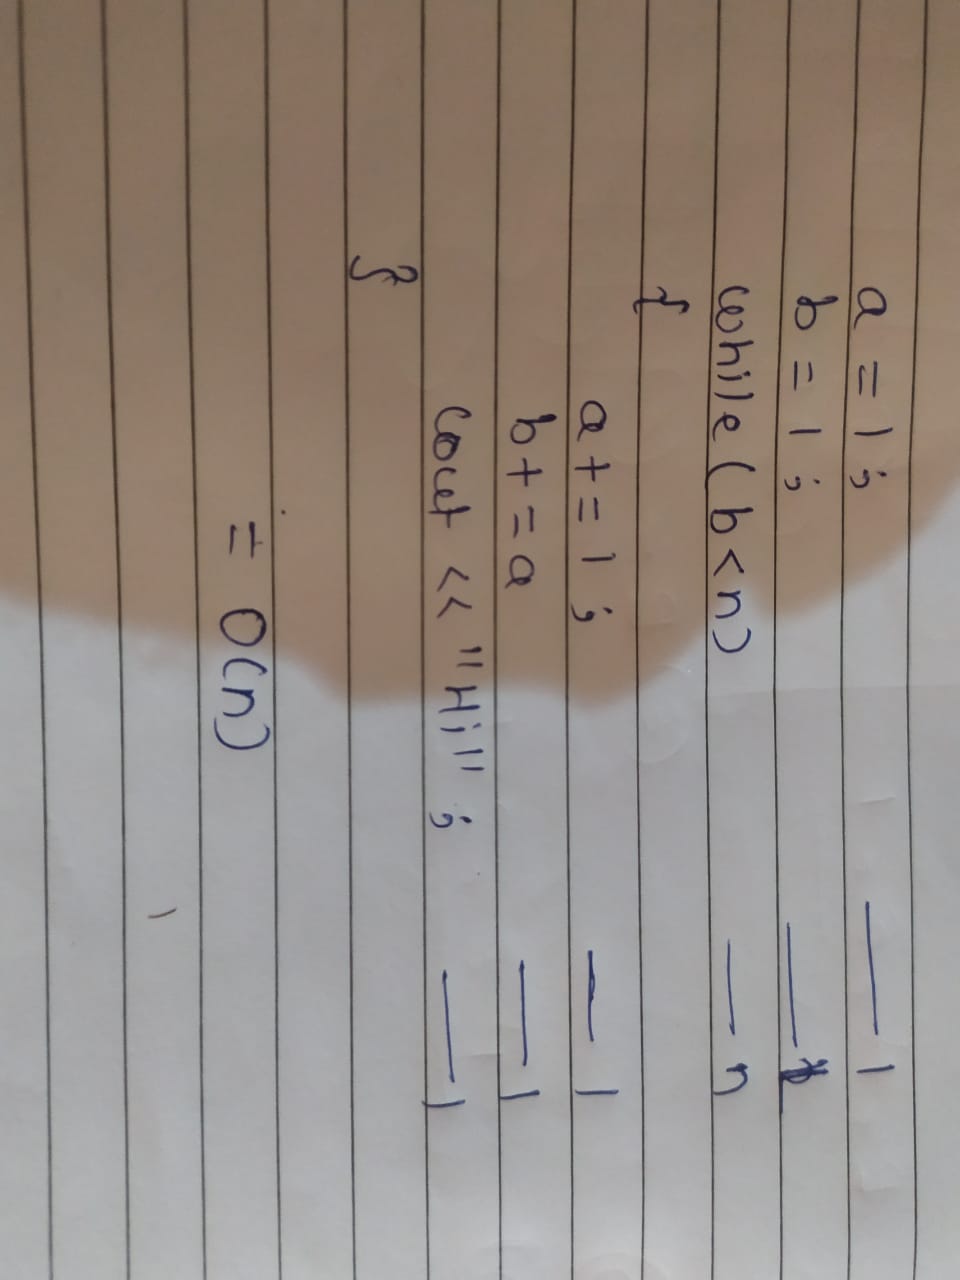 a = 1 ; — 1
b = 1 ; —
while ( b < n ) — n
{
a + = 1 ; — 1
b + = a — 1
cout << "Hi!!" ; — 1
}
= O(n)